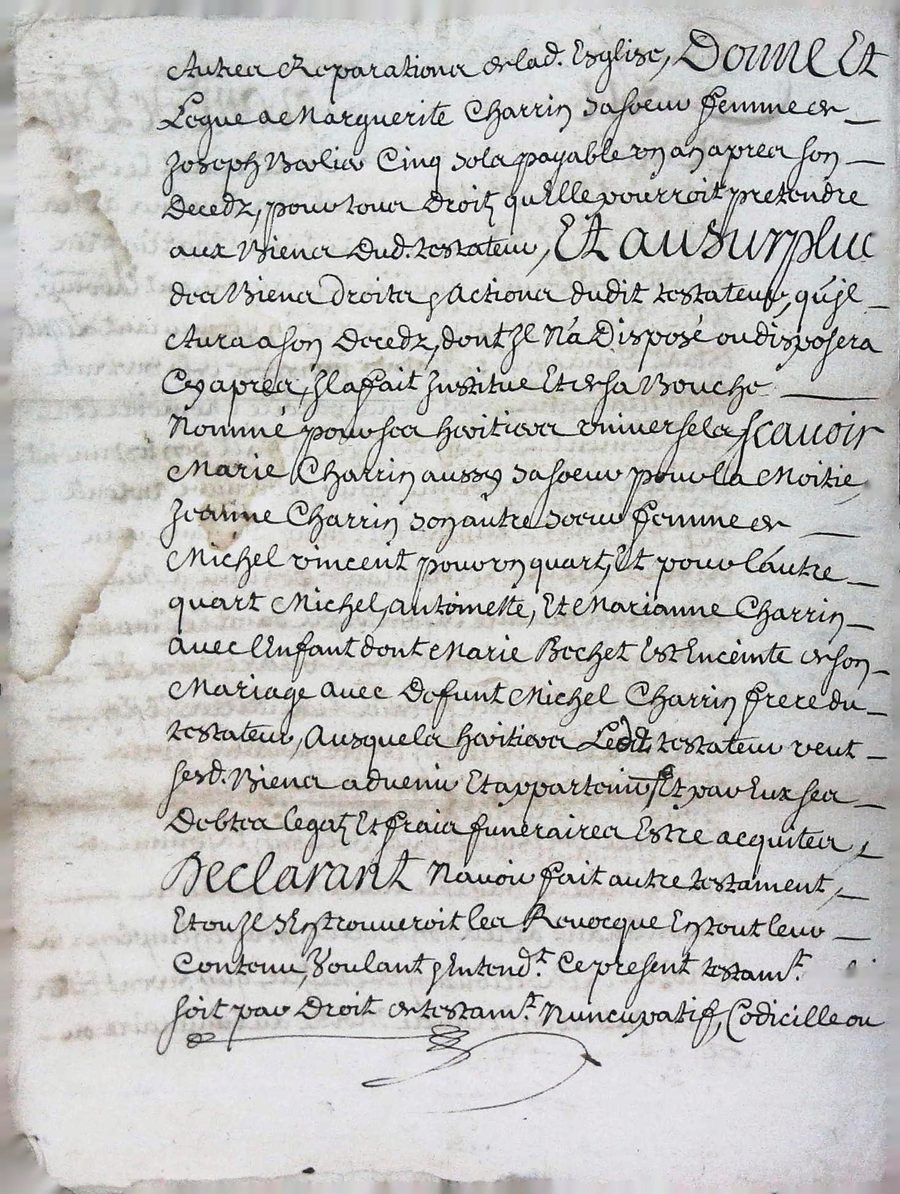 Autres Reparations de lad. Esglise, Donne Et
Legue a Marguerite Charrin sa soeur femme de
Joseph Barlier Cinq sols payable un an apres son
Decedz, pour tous droitz qu'Elle pourroit pretendre
aux Biens Dud. testateur, Et au surplus
des Biens droits & Actions dudit testateur, qu'jl
Aura a son Decedz, dont Jl N'a Disposé ou disposera
Cy apres, Jl a fait Jnstitue Et de sa Bouche
Nomme pour ses heritiers universels scavoir
Marie Charrin aussy sa soeur pour la Moitie,
Jeanne Charrin son autre soeur femme de
Michel vincent pour un quart, Et pour l'autre
quart Michel, Antoinette, Et Marianne Charrin
avec l'Enfant dont Marie Bechet Est Enceinte de son
Mariage avec Defunt Michel Charrin frere du
testateur, Ausquels heritiers Ledit testateur veut
sesd. Biens advenir Et appartenir Et par Eux ses
Debtes legatz Et frais funeraires Estre acquites,
Declarant N'avoir fait autre testament,
Et ou Jl s'En trouveroit les Revocque En tout leur
Contenu, Voulant & Entend.t Ce present testam.t
soit par Droit de testam.t Nuncupatif, Codicille ou